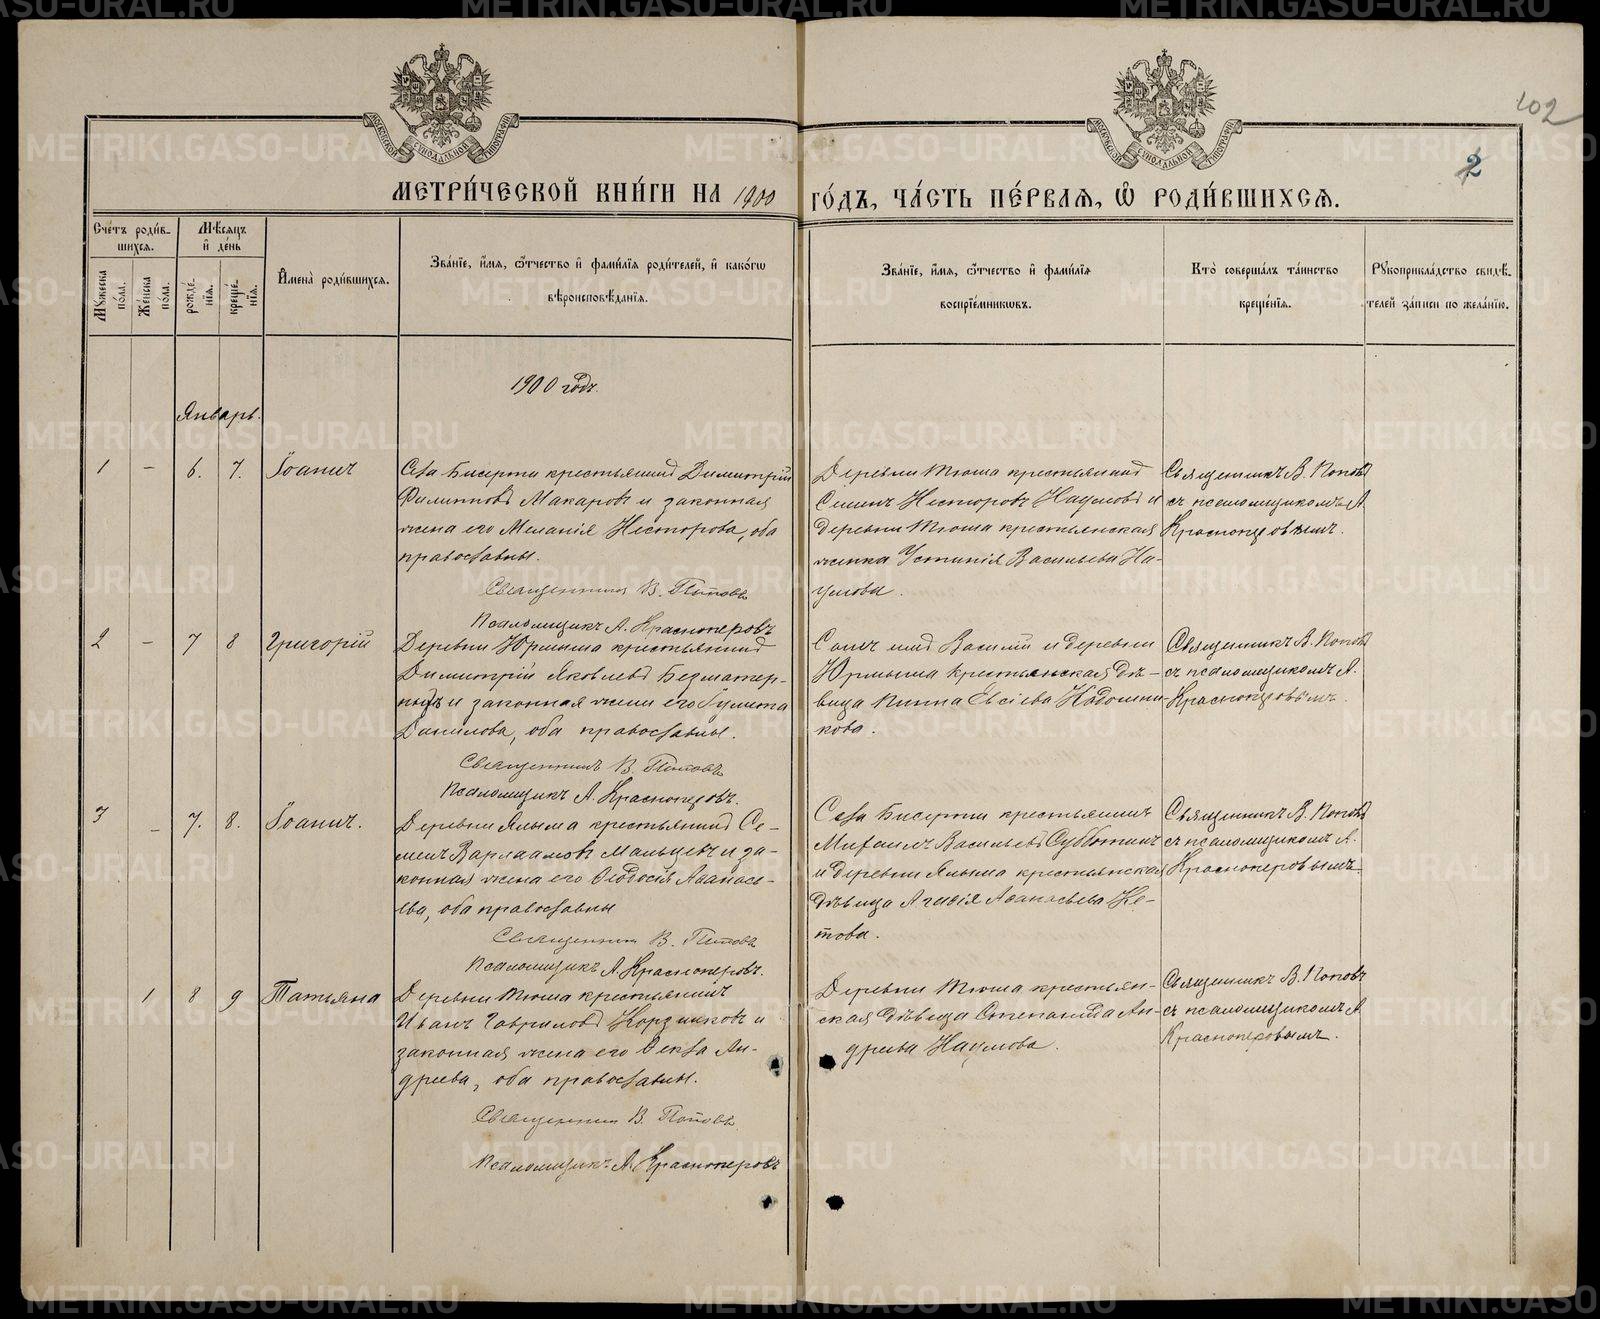 102
2
МЕТРИ́ЧЕСКОЙ КНИ́ГИ НА 1900 ГО́ДЪ, ЧА́СТЬ ПЕ́РВАЯ, Ѿ РОДИ́ВШИХСЯ.
Сче́тъ роди́в-
шихся.
Мꙋжеска по́ла.
Же́нска по́ла.
Мѣ́сяцъ
и де́нь
рожде́нїя.
креще́нїя.
Имена̀ роди́вшихся.
Зва́нїе, и́мя, ѻ́тчество и фами́лїя роди́телей, и како́гѡ
вѣроисповѣ́данїя.
Зва́нїе, и́мя, ѻ́тчество и фами́лїя
воспрїе́мникѡвъ.
Кто̀ соверша́лъ та́инство
креще́нїя.
Рꙋкоприкла́дство свидѣ́-
телей за́писи по жела́нїю.
1900 годъ.
Январь.
1 – 6. 7. Іоаннъ
Села Бисерти крестьянинъ Димитрій
Филипповъ Макаровъ и законная
жена его Меланія Несторова, оба
православны.
Священникъ В. Поповъ
Псаломщикъ А. Красноперовъ
Деревни Тюша крестьянинъ
Семенъ Несторовъ Наумовъ и
деревни Тюша крестьянская
женка Устинія Васильева На-
умова.
Священникъ В. Поповъ
съ псаломщикомъ А.
Красноперовымъ.
2 – 7 8 Григорій
Деревни Юрмыша крестьянинъ
Димитрій Яковлевъ Безматер-
ныхъ и законная жена его
Данилова, оба православны.
Священникъ В. Поповъ
Псаломщикъ А. Красноперовъ.
Василій и деревни
Юрмыша крестьянская дѣ-
вица Евсіева
кова.
Священникъ В. Поповъ
съ псаломщикомъ А.
Красноперовымъ.
3 – 7. 8. Іоаннъ.
Деревни Ялыма крестьянинъ Се-
менъ Варлаамовъ Мальцевъ и за-
конная жена его Ѳеодосія Аѳанась-
ева, оба православны
Священникъ В. Поповъ
Псаломщикъ А. Красноперовъ.
Села Бисерти крестьянинъ
Михаилъ Васильевъ Субботинъ
и деревни Ялыма крестьянская
дѣвица Агаѳія Аѳанасьева Ке-
това.
Священникъ В. Поповъ
съ псаломщикомъ А.
Красноперовымъ.
1 8 9 Татьяна
Деревни Тюша крестьянинъ
Иванъ Гавриловъ Корзниковъ и
законная жена его Ѳекла Ан-
дреева, оба православны.
Священникъ В. Поповъ
Псаломщикъ А. Красноперовъ
Деревни Тюша крестьян-
ская дѣвица Степанида Ан-
дреева Наумова.
Священникъ В. Поповъ
съ псаломщикомъ А
Красноперовымъ.
METRIKI.GASO-URAL.RU